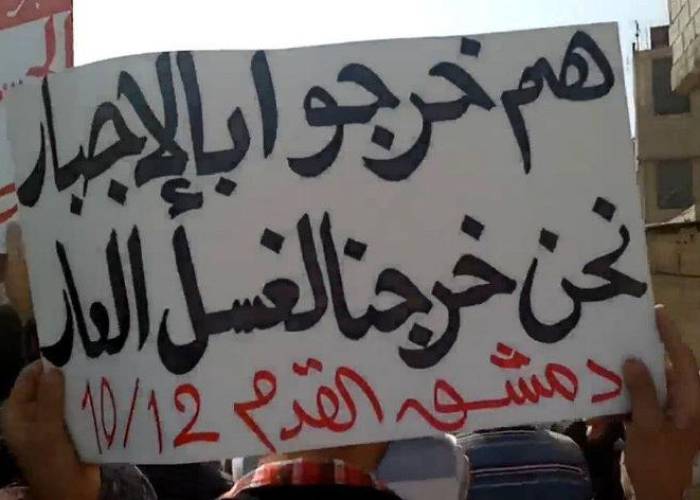 هم خرجوا بالإجبار
نحن خرجنا لغسل العار
دمشق القدم 10/12